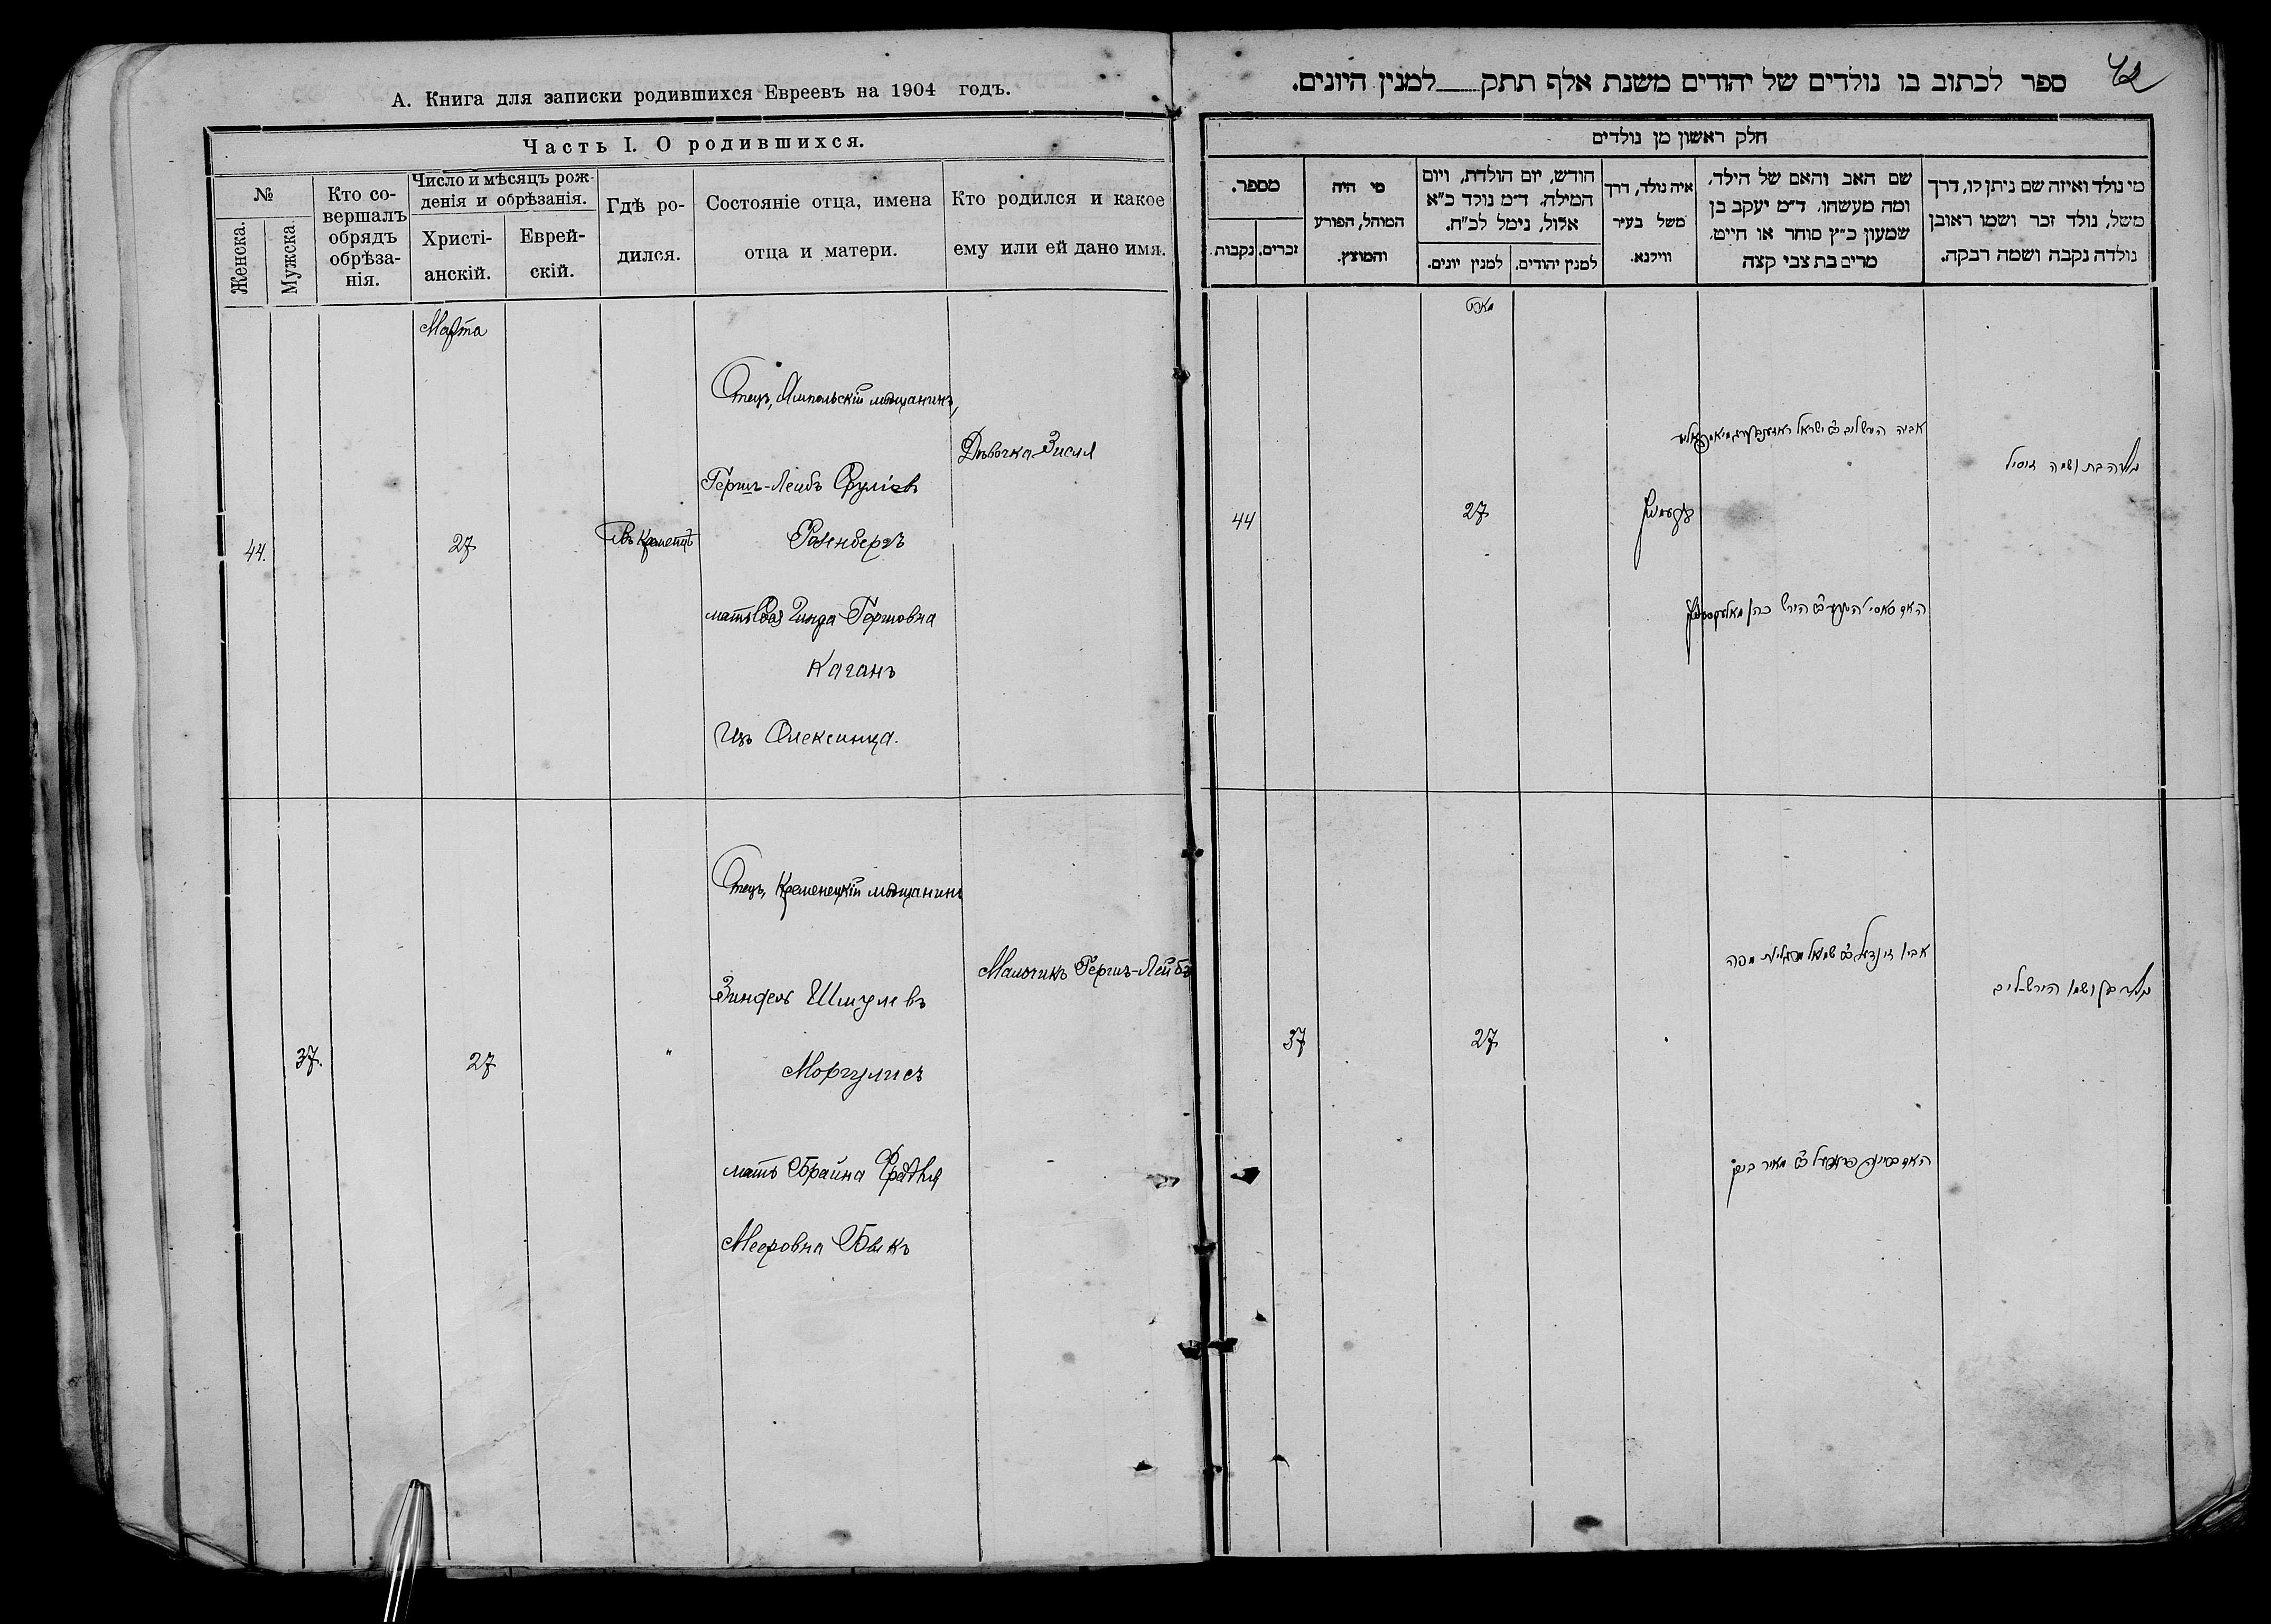 А. Книга для записки родившихся Евреевъ на 1904 годъ.
Часть I. О родившихся.
№
Женска.
Мужска.
Кто со-
вершалъ
обрядъ
обрѣза-
нія.
Число и мѣсяцъ рож-
денія и обрѣзанія.
Христі-
анскій.
Еврей-
скій.
Гдѣ ро-
дился.
Состояніе отца, имена
отца и матери.
Кто родился и какое
ему или ей дано имя.
Марта
Отецъ, Ямпольскій мѣщанинъ,
Дѣвочка Зисля
Герш-Лейбъ Срулiевъ
44.
27
въ Кременцѣ
Розенбергъ
мать Гинда Гершовна
Каганъ
Изъ Олексинца.
Отецъ, Кременецкій мѣщанинъ
Мальчикъ Гершъ-Лейбъ
Зиндель Шмулевъ
37.
27
"
Моргулисъ
мать Брайна Фрадля
Мееровна Быкъ
42
ספר לכתוב בו נולדים של יהודים משנת אלף תתק___למנין היונים.
חלק ראשון מן נולדים
מי נולד ואיזה שם ניתן לו, דרך
משל, נולד זכר ושמו ראובן
נולדה נקבה ושמה רבקה.
שם האב והאם של הילד,
ומה מעשהו, ד״מ יעקב בן
שמעון כ״ץ סוחר או חייט,
מרים בת צבי קצה
איה נולד, דרך
משל בעיר
ווילנא.
חודש, יום הולדת, ויום
המילה, ד״מ נולד כ״א
אלול, נימל לכ״ח.
למנין יהודים.
למנין יונים.
מי היה
המוהל, הפורע
והמוצץ.
מספר.
זכרים.
נקבות.
מארט
אביה הירש לייב ב״ר ישראל ראזענבערג
נולדה בת ושמה זיסיל
27
44
הירש כהן
אביו זינדיל ב״ר שמואל מרגליות מפה
נולד בן ושמו הירש-לייב
27
37
פראדיל ב״ר מאיר ביק